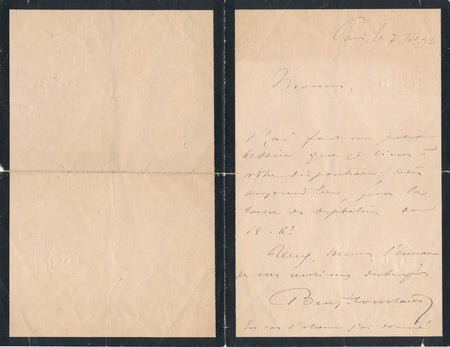 Paris, le 7
Monsieur,
J'ai fait un petit
dessin que je tiens à
votre disposition, dès
aujourd'hui, pour la
des orphelins du
18e
Monsieur, l'assurance
de mes sentiments distingués
Benj-Constant
En cas d'absence j'ai donné